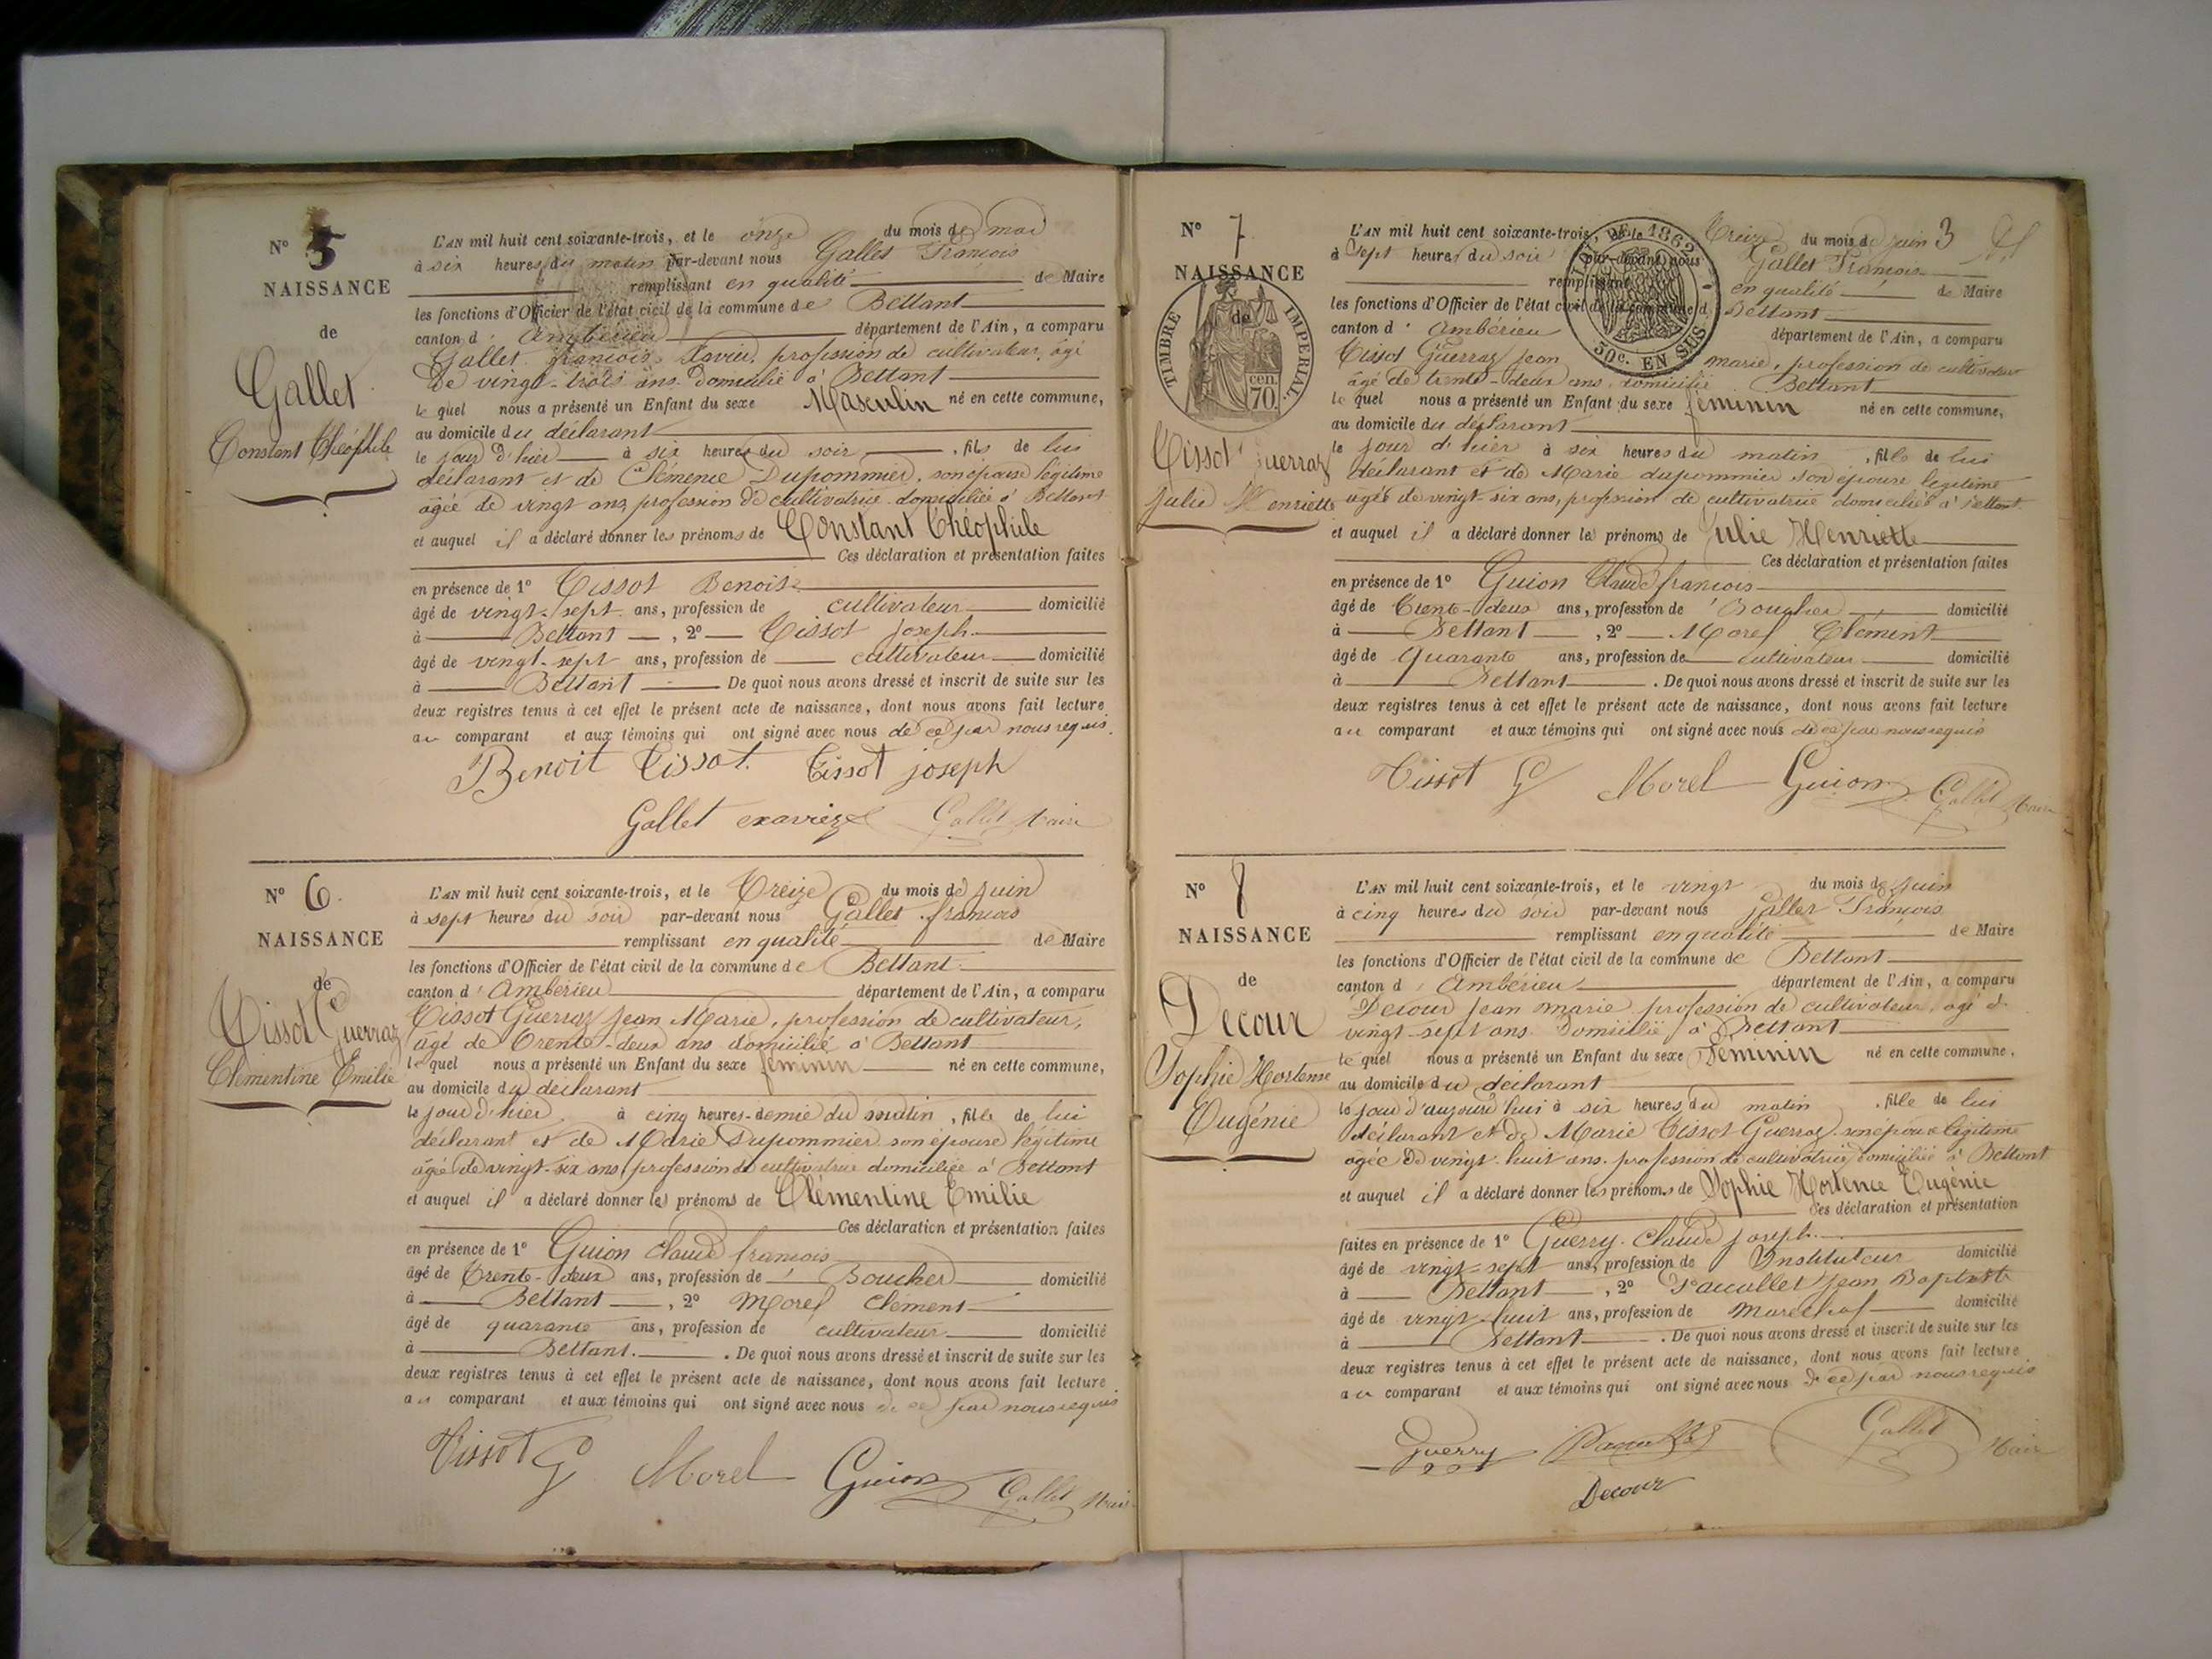 N° 5
NAISSANCE
de
Gallet
Constant Théophile
L'AN mil huit cent soixante-trois, et le onze du mois de mai
à six heures du matin par-devant nous Gallet François
remplissant en qualité de Maire
les fonctions d'Officier de l'état civil de la commune de Bettant
canton d' Ambérieu département de l'Ain, a comparu
Gallet françois Xavier, profession de cultivateur, âgé
de vingt-trois ans domicilié à Bettant
le quel nous a présenté un Enfant du sexe Masculin né en cette commune,
au domicile du déclarant
le jour d'hier à six heures du soir, fils de lui
déclarant et de Clémence Dupommier, son épouse légitime
âgée de vingt ans, profession de cultivatrice domiciliée à Bettant
et auquel il a déclaré donner les prénoms de Constant Théophile
Ces déclaration et présentation faites
en présence de 1° Tissot Benoit
âgé de vingt-sept ans, profession de cultivateur domicilié
à Bettant, 2° Tissot joseph
âgé de vingt-sept ans, profession de cultivateur domicilié
à Bettant De quoi nous avons dressé et inscrit de suite sur les
deux registres tenus à cet effet le présent acte de naissance, dont nous avons fait lecture
au comparant et aux témoins qui ont signé avec nous de ce par nous requis.
Benoit Tissot. Tissot joseph
Gallet exavier Gallet Maire
N° 6.
NAISSANCE
de
Tissot Guerraz
Clémentine Emilie
L'AN mil huit cent soixante-trois, et le Treize du mois de juin
à sept heures du soir par-devant nous Gallet françois
remplissant en qualité de Maire
les fonctions d'Officier de l'état civil de la commune de Bettant
canton d' Ambérieu département de l'Ain, a comparu
Tissot Guerraz Jean Marie, profession de cultivateur,
âgé de Trente-deux ans domicilié à Bettant
le quel nous a présenté un Enfant du sexe féminin né en cette commune,
au domicile du déclarant
le jour d'hier à cinq heures-demie du matin, fille de lui
déclarant et de Marie Dupommier son épouse légitime
âgée de vingt-six ans, profession de cultivatrice domiciliée à Bettant
et auquel il a déclaré donner les prénoms de Clémentine Emilie
Ces déclaration et présentation faites
en présence de 1° Guion Claude françois
âgé de Trente-deux ans, profession de Boucher domicilié
à Bettant, 2° Morel Clément
âgé de quarante ans, profession de cultivateur domicilié
à Bettant. De quoi nous avons dressé et inscrit de suite sur les
deux registres tenus à cet effet le présent acte de naissance, dont nous avons fait lecture
au comparant et aux témoins qui ont signé avec nous de ce par nous requis
Tissot G Morel Guion Gallet Maire
N° 7
NAISSANCE
de
TIMBRE IMPERIAL
70 cen.
Tissot Guerraz
Julie Henriette
3
LOI DE 1862
50c. EN SUS
L'AN mil huit cent soixante-trois, et le Treize du mois de juin
à Sept heures du soir par-devant nous Gallet François
remplissant en qualité de Maire
les fonctions d'Officier de l'état civil de la commune d Bettant
canton d' Ambérieu département de l'Ain, a comparu
Tissot Guerraz Jean marie, profession de cultivateur
âgé de trente-deux ans, domicilié Bettant
le quel nous a présenté un Enfant du sexe féminin né en cette commune,
au domicile du déclarant
le jour d'hier à six heures du matin, fille de lui
déclarant et de Marie dupommier son épouse légitime
âgée de vingt-six ans, profession de cultivatrice domiciliée à Bettant.
et auquel il a déclaré donner les prénoms de Julie Henriette
Ces déclaration et présentation faites
en présence de 1° Guion Claude françois
âgé de Trente-deux ans, profession de Boucher domicilié
à Bettant, 2° Morel Clément
âgé de Quarante ans, profession de cultivateur domicilié
à Bettant. De quoi nous avons dressé et inscrit de suite sur les
deux registres tenus à cet effet le présent acte de naissance, dont nous avons fait lecture
au comparant et aux témoins qui ont signé avec nous de ce par nous requis
Tissot G Morel Guion Gallet Maire
N° 8
NAISSANCE
de
Decour
Sophie Hortense
Eugénie
L'AN mil huit cent soixante-trois, et le vingt du mois de juin
à cinq heures du soir par-devant nous Gallet François
remplissant en qualité de Maire
les fonctions d'Officier de l'état civil de la commune de Bettant
canton d' Ambérieu département de l'Ain, a comparu
Decour Jean marie profession de cultivateur, âgé de
vingt-sept ans domicilié à Bettant
le quel nous a présenté un Enfant du sexe Féminin né en cette commune,
au domicile du déclarant
le jour d'aujourd'hui à six heures du matin, fille de lui
déclarant et de Marie Tissot Guerraz son épouse légitime
âgée de vingt-huit ans, profession de cultivatrice domiciliée à Bettant
et auquel il a déclaré donner les prénoms de Sophie Hortence Eugénie
Ces déclaration et présentation
faites en présence de 1° Guerry Claude joseph
âgé de vingt-sept ans, profession de Instituteur domicilié
à Bettant, 2° Jean Baptiste
âgé de vingt-huit ans, profession de Maréchal domicilié
à Bettant. De quoi nous avons dressé et inscrit de suite sur les
deux registres tenus à cet effet le présent acte de naissance, dont nous avons fait lecture
au comparant et aux témoins qui ont signé avec nous de ce par nous requis
Guerry Gallet Maire
Decour